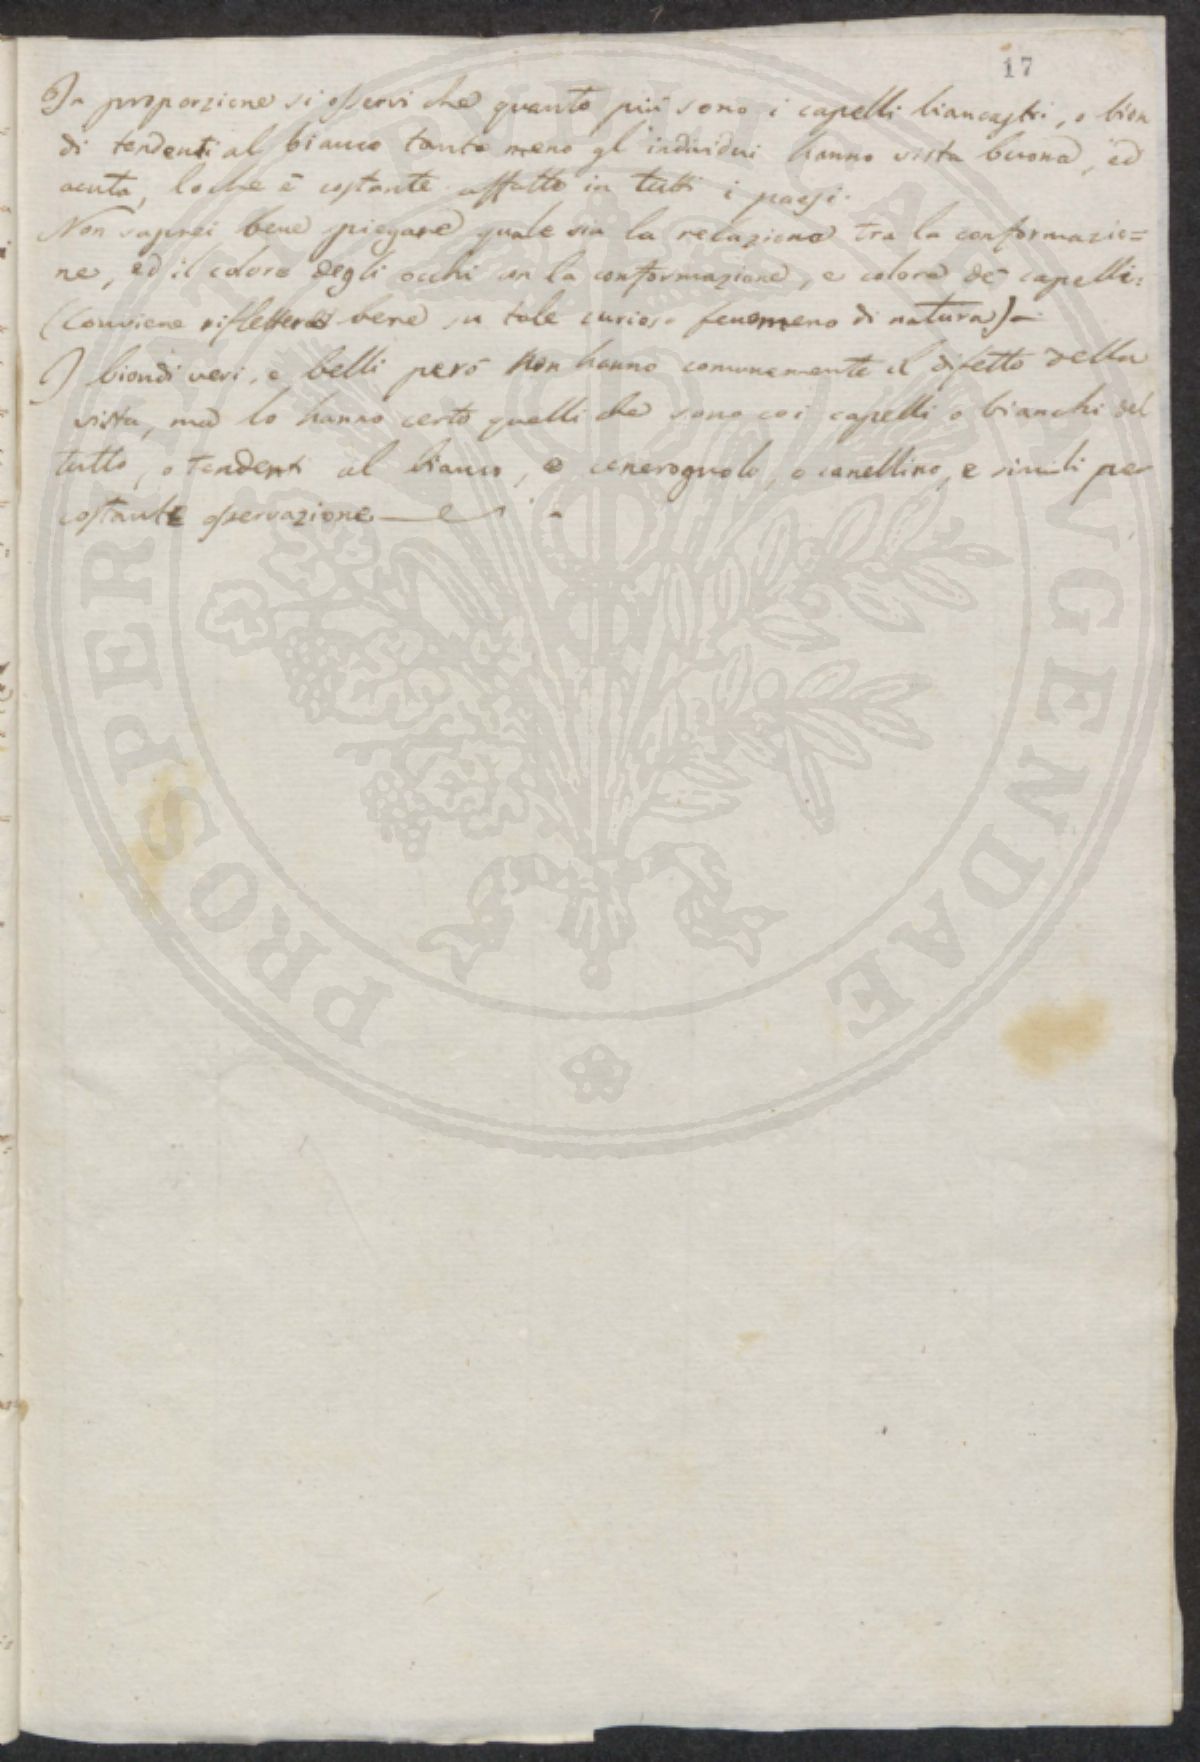 17
In proporzione si osservi che quanto più sono i capelli biancastri, o bion
di tendenti al bianco tanto meno gl'individui hanno vista buona, ed
acuta, loche è costante affatto in tutti i paesi.
Non saprei bene spiegare quale sia la relazione tra la conformazio=
ne, ed il colore degli occhi con la conformazione, e colore de' capelli.
(Conviene riflettersi bene su tale curioso fenomeno di natura)—
I biondi veri, e belli però non hanno comunemente il difetto della
vista, ma lo hanno certo quelli che sono coi capelli o bianchi del
tutto, o tendenti al bianco, o cenerognolo, o canellino, e simili per
costante osservazione.
PROSPERITATI PVBLICAE AVGENDAE